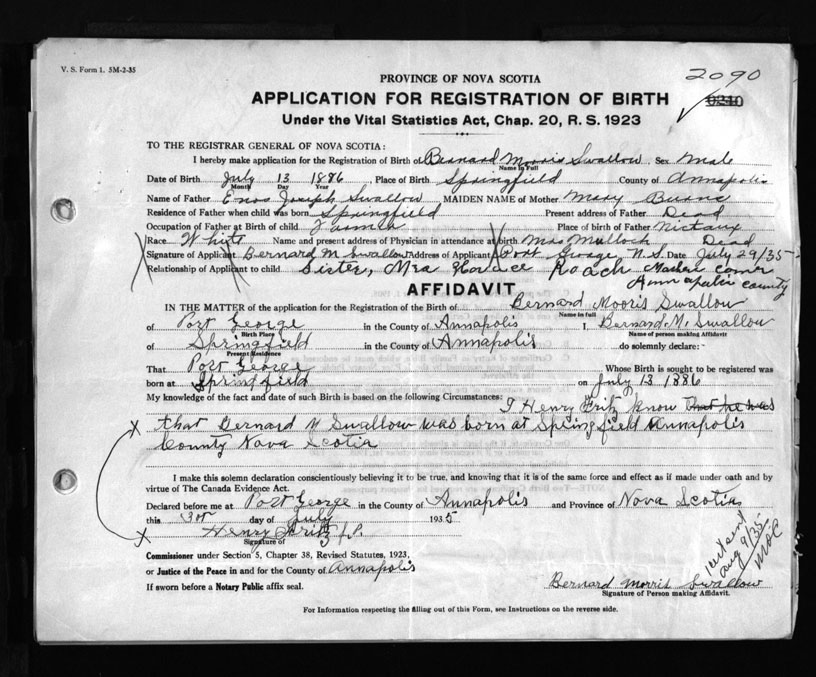 V. S. Form 1. 5M-2-35
2090
0210
PROVINCE OF NOVA SCOTIA
APPLICATION FOR REGISTRATION OF BIRTH
Under the Vital Statistics Act, Chap. 20, R. S. 1923
TO THE REGISTRAR GENERAL OF NOVA SCOTIA:
I hereby make application for the Registration of Birth of Bernard Mooris Swallow Sex Male
Name in Full
Date of Birth July 13 1886 Place of Birth Springfield County of Annapolis
Month Day Year
Name of Father Enos Joseph Swallow MAIDEN NAME of Mother Mary
Residence of Father when child was born Springfield Present address of Father Dead
Occupation of Father at Birth of child Farmer Place of birth of Father Nictaux
Race White Name and present address of Physician in attendance at birth Mrs Mulloch Dead
Signature of Applicant Bernard M Swallow Address of Applicant Port George N.S. Date July 29/35
Relationship of Applicant to child Sister, Mrs Horace Roach
Annapolis county
AFFIDAVIT
IN THE MATTER of the application for the Registration of the Birth of Bernard Mooris Swallow
Name in full
of Port George in the County of Annapolis I, Bernard M. Swallow
Birth Place Name of person making Affidavit
of Springfield in the County of Annapolis do solemnly declare:
Present Residence
That Port George Whose Birth is sought to be registered was
born at Springfield on July 13 1886
My knowledge of the fact and date of such Birth is based on the following Circumstances:
I Henry Fritz know That he was
that Bernard M Swallow was born at Springfield Annapolis
County Nova Scotia
I make this solemn declaration conscientiously believing it to be true, and knowing that it is of the same force and effect as if made under oath and by
virtue of The Canada Evidence Act.
Declared before me at Port George in the County of Annapolis and Province of Nova Scotia
this 30 day of July 1935
Henry Fritz J.P.
Signature of
Commissioner under Section 5, Chapter 38, Revised Statutes, 1923,
or Justice of the Peace in and for the County of Annapolis
If sworn before a Notary Public affix seal.
Aug 9/35
Bernard Morris Swallow
Signature of Person making Affidavit.
For Information respecting the filling out of this Form, see Instructions on the reverse side.